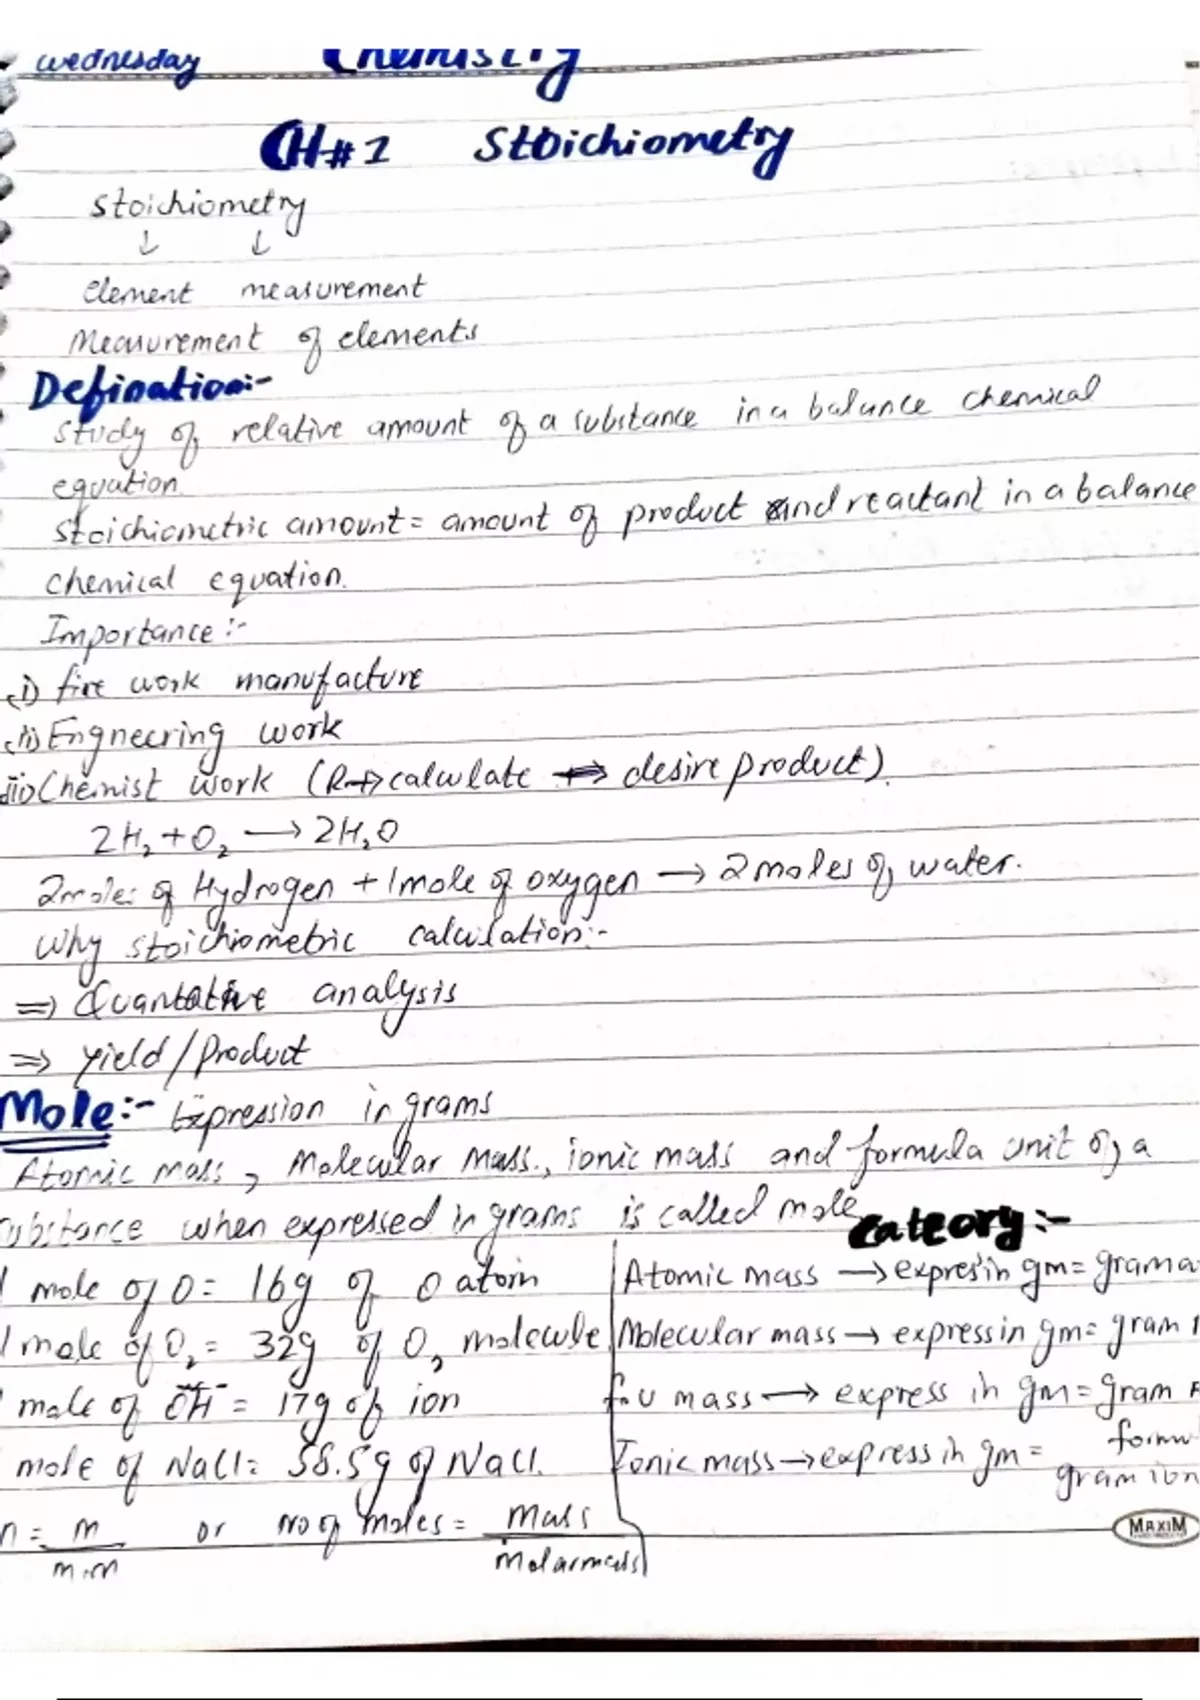 wednesday Chemistry
CH#1 Stoichiometry
Stoichiometry
↓ ↓
element measurement
Measurement of elements
Defination:-
study of relative amount of a substance in a balance chemical
equation.
stoichiometric amount = amount of product and reactant in a balance
chemical equation.
Importance:-
(i) fire work manufacture
(ii) Engneering work
(iii) Chemist work (R→ calculate → desire product).
2H₂ + O₂ → 2H₂O
2 moles of Hydrogen + 1 mole of oxygen → 2 moles of water.
Why stoichiometric calculation:-
⇒ Quantative analysis
⇒ Yield/Product
Mole:- Expression in grams
Atomic mass, Molecular mass., ionic mass and formula unit of a
substance when expressed in grams is called mole
1 mole of O = 16g of O atom
1 mole of O₂ = 32g of O₂ molecule
mole of OH⁻ = 17g of ion
mole of NaCl = 58.5g of NaCl.
n = m/m.m or no of moles = Mass/Molarmass
Cateory:-
Atomic mass → expres in gm = gram a
Molecular mass → express in gm = gram
f.u mass → express in gm = gram
formu
Ionic mass → express in gm = gram ion
MAXIM